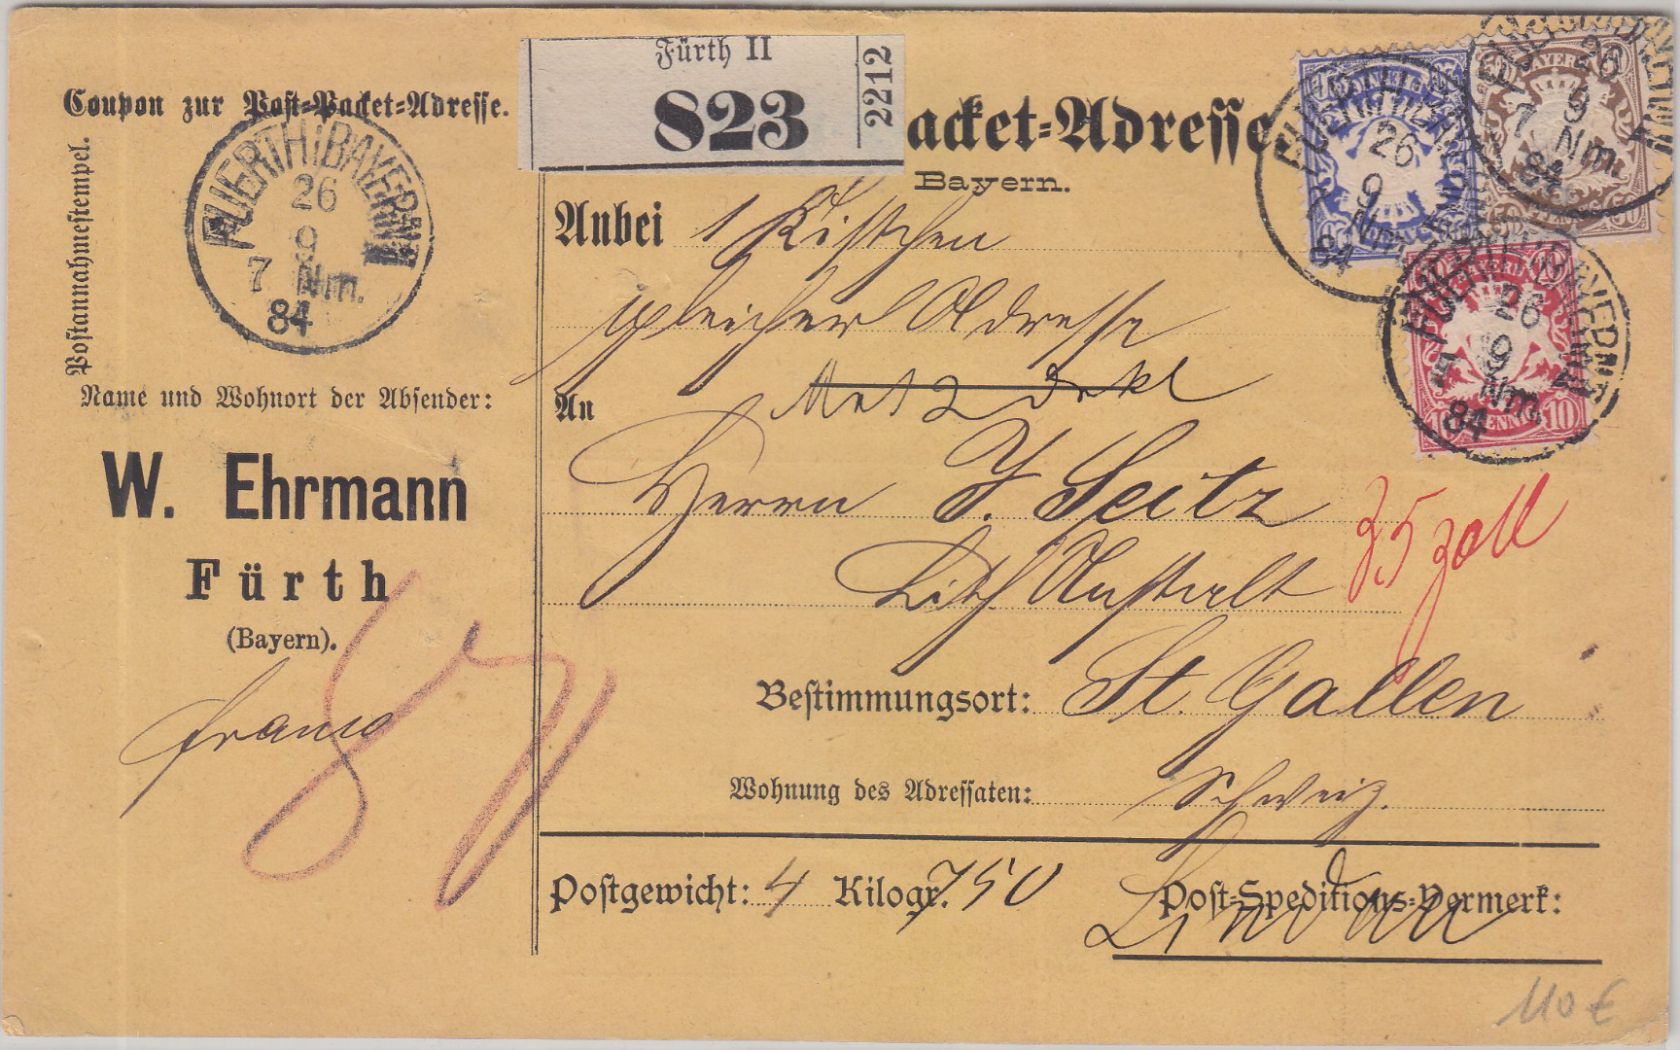 Coupon zur Post-Packet-Adresse.
Postannahmestempel.
FUERTH (BAYERN)
26
9
7 Nm.
84
Name und Wohnort der Absender:
W. Ehrmann
Fürth
(Bayern).
franco
Fürth II
823
2212
acket-Adresse
Bayern.
Anbei 1 Kistchen
gleicher Adresse
An
Herrn J. Seitz
Lith Anstalt
Bestimmungsort: St. Gallen
Wohnung des Adressaten: Schweiz.
Postgewicht: 4 Kilogr. 750
Post-Speditions-Vermerk:
Lindau
26
9
Nm.
84
26
9
7 Nm.
84
26
9
Nm.
84
10 PFENNIG 10
Zoll
110 €